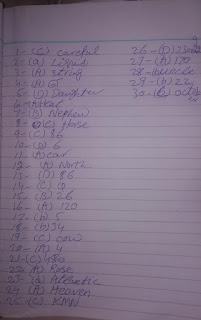 1- (C) careful
2- (a) Liquid
3- (A) string
4- (A) GT
5- (D) Daughter
6- A Heat
7- (B) Nephew
8- (C) Horse
9- (C) 86
10- (D) 6
11- (A) car
12- (A) North
13- (D) 86
14- (C) 0
15- (B) 26
16- (A) 120
17- (b) 5
18- (b) 34
19- (C) cow
20- (A) 4
21- (C) 480
22- (A) Rose
23- (d) Atlantic
24- (A) Heaven
25- (C) KMN
26- (D)
27- (A) 120
28-
29- (b) 22
30- (C) octob